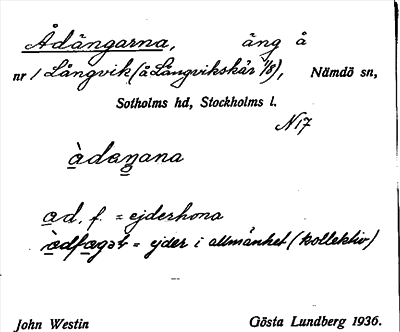 Ådängarna, äng å
nr 1 Långvik (å Långvikskär 1/8), Nämdö sn,
Sotholms hd, Stockholms l.
N 17
àdaŋana
ad, f. = ejderhona
àdfagəl = ejder i allmänhet (kollektiv)
John Westin Gösta Lundberg 1936.